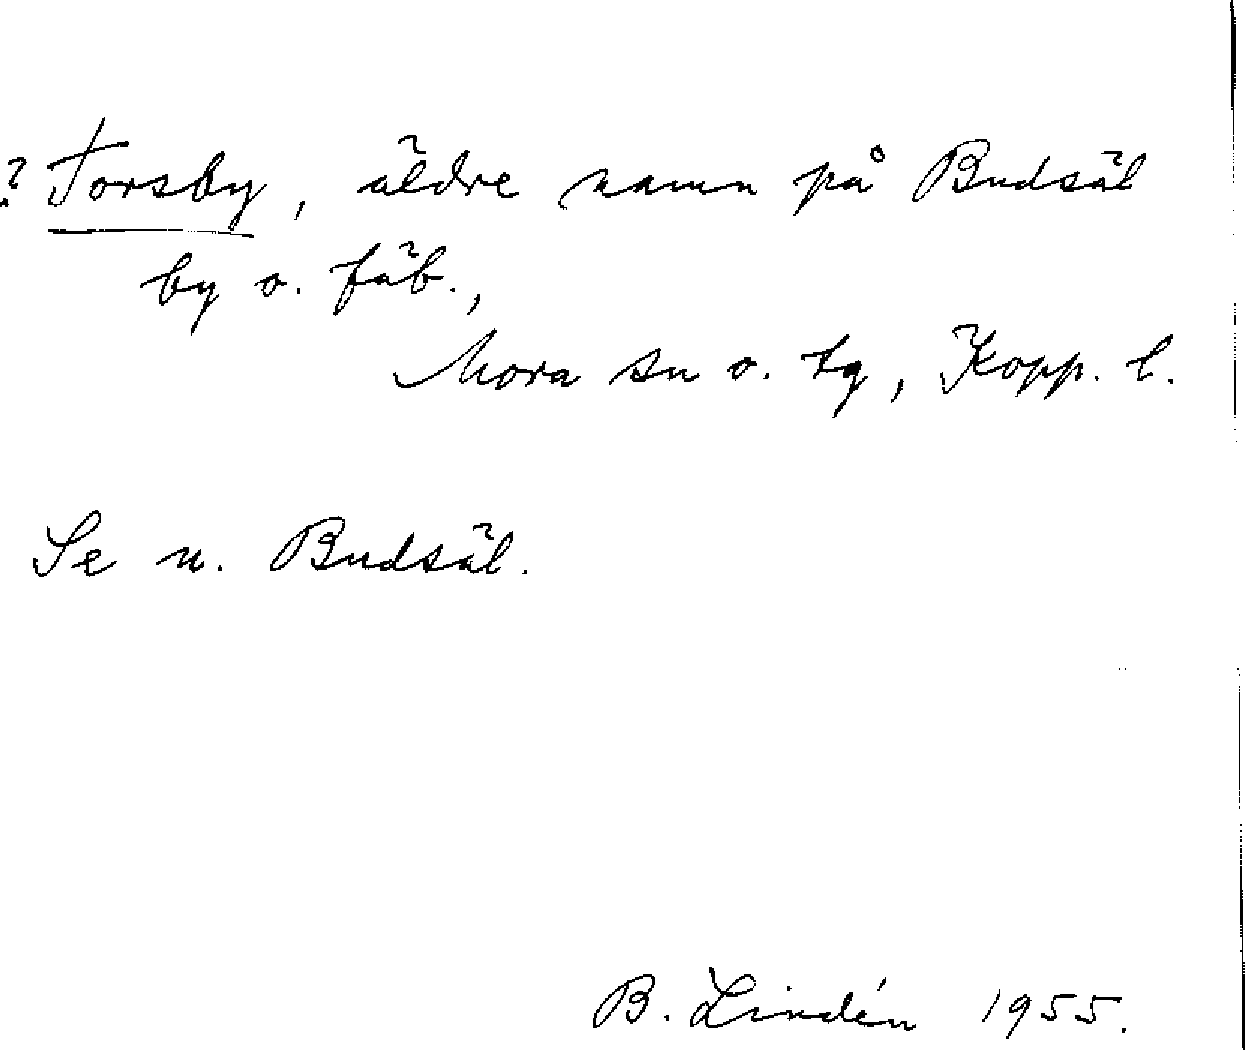 ? Torsby, äldre namn på Budsäl
by o. fäb.,
Mora sn o. tg, Kopp. l.
Se u. Budsäl.
B. Lindén 1955.